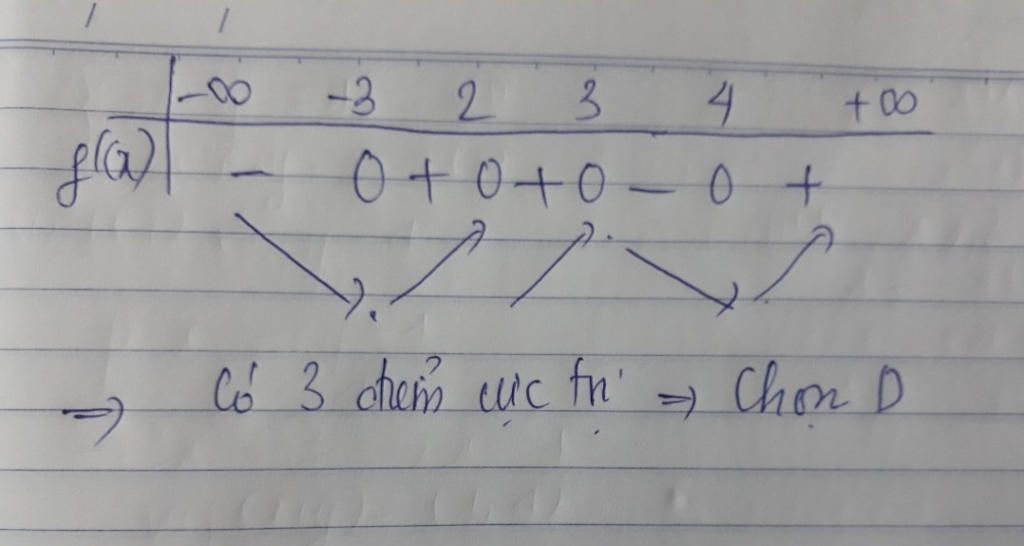 -∞ -3 2 3 4 +∞
f'(x) - 0 + 0 + 0 - 0 +
=> Có 3 điểm cực trị => Chọn D